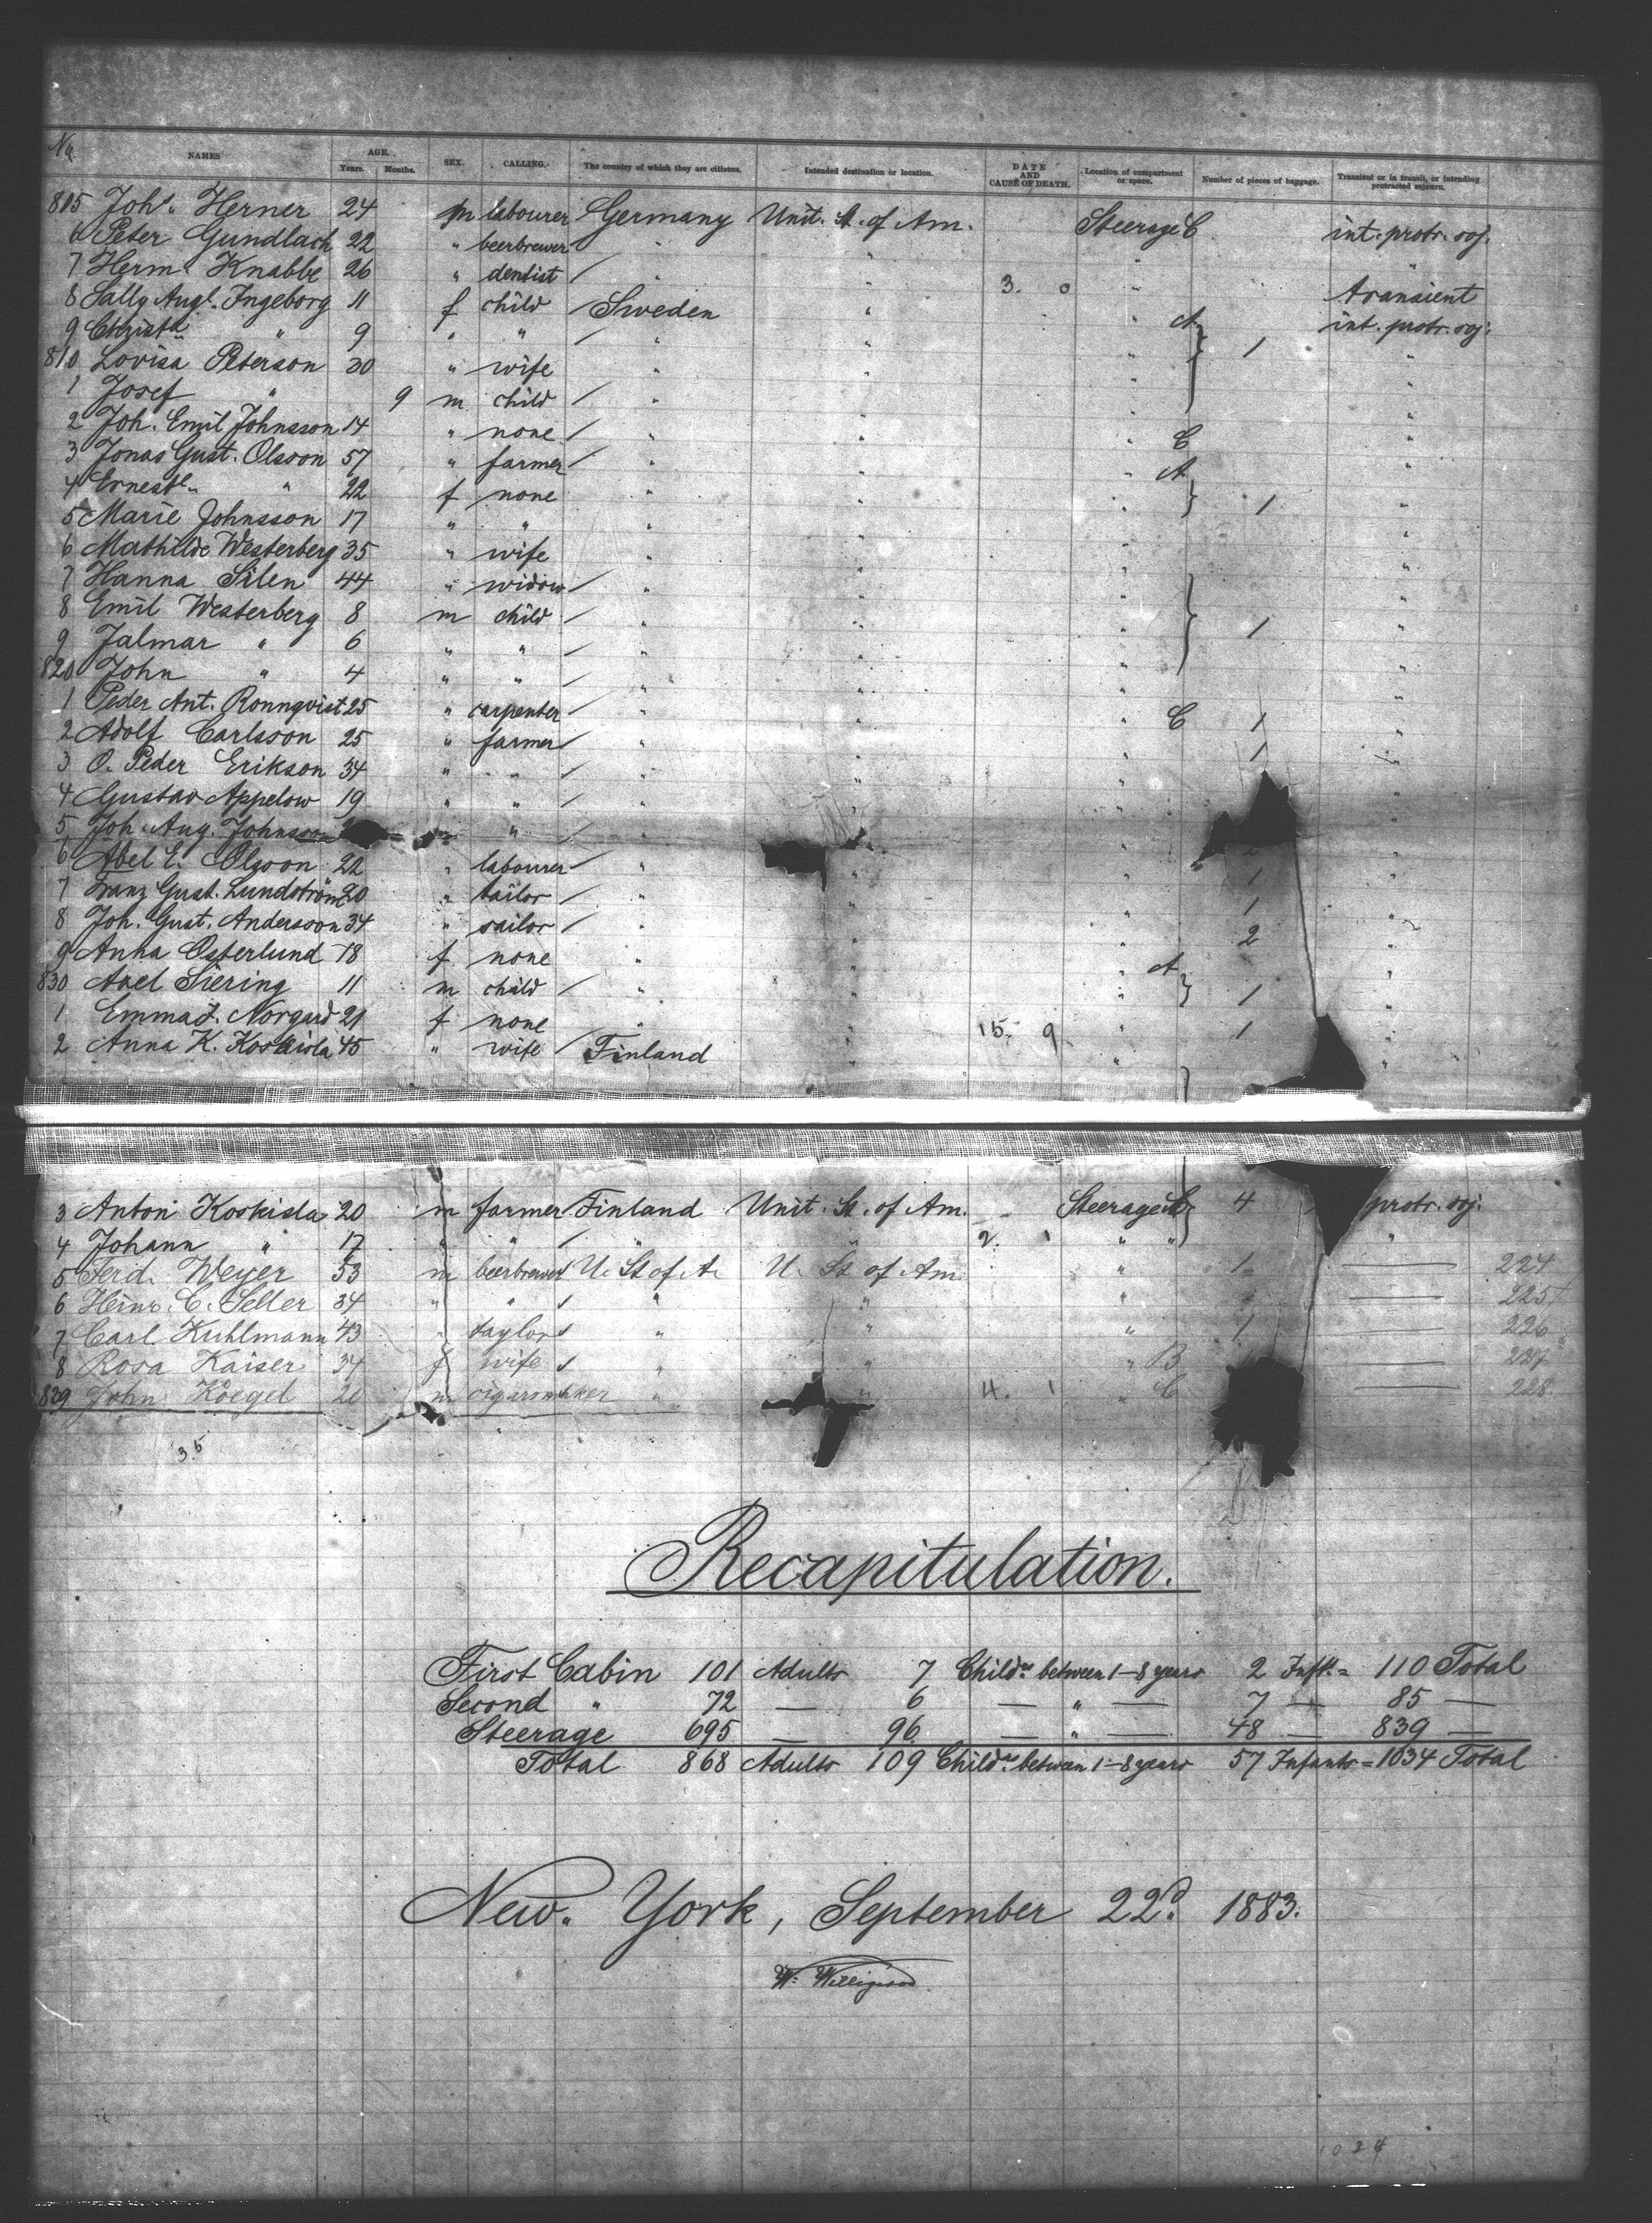 No. NAMES AGE. Years. Months. SEX. CALLING. The country of which they are citizens. Intended destination or location. DATE AND CAUSE OF DEATH. Location of compartment or space. Number of pieces of baggage. Transient or in transit, or intending protracted sojourn.
805 Joh. Herner 24 m labourer Germany Unit. St. of Am. Steerage C int. protr. soj.
6 Peter Gundlach 22 " beerbrewer " " " "
7 Herm. Knabbe 26 " dentist / " " 3. 0 " transient
8 Sally Aug. Ingeborg 11 f child / Sweden " " A int. protr. soj.
9 Christ. " 9 " " / " " " 1 "
810 Lovisa Peterson 30 " wife " " " "
1 Josef " 9 m child / " " " "
2 Joh. Emil Johnsson 14 " none / " " " C "
3 Jonas Gust. Olsson 57 " farmer / " " " A "
4 Ernest. " 22 f none " " " 1 "
5 Marie Johnsson 17 " " " " " "
6 Mathilde Westerberg 35 " wife " " " "
7 Hanna Silen 44 " widow / " " " "
8 Emil Westerberg 8 m child / " " " 1 "
9 Jalmar " 6 " " / " " " "
820 John " 4 " " / " " " "
1 Peder Ant. Ronnqvist 25 " carpenter / " " " C 1 "
2 Adolf Carlsson 25 " farmer / " " " 1 "
3 O. Peder Erikson 34 " " / " " "
4 Gustav Appelow 19 " " / " "
5 Joh. Aug. Johnsson " /
6 Abel E. Olsson 22 " labourer / " " "
7 Franz Gust. Lundström 20 " tailor / " " " 1 "
8 Joh. Gust. Andersson 34 " sailor / " " " 2 "
9 Anna Osterlund 18 f none " " " A "
830 Axel Siering 11 m child / " " " 1 "
1 Emma Norgard 21 f none " " 15. 9 " 1 "
2 Anna K. Koskisla 45 " wife / Finland " " "
3 Anton Koskisla 20 m farmer Finland Unit. St. of Am. Steerage C 4 protr. soj.
4 Johann " 17 " " / " " 2. 1 " " "
5 Ferd. Weyer 53 m beerbrewer U. St of A. U. St of Am. " 1 — 224
6 Heinr. C. Seller 34 " " / " " " — 225
7 Carl Kuhlmann 43 " taylor / " " " 1 — 226
8 Rosa Kaiser 34 f wife / " " " B — 227
839 John Koegel 20 m cigarsmaker " " 4. 1 " C — 228
35
Recapitulation.
First Cabin 101 Adults 7 Childrn between 1-8 years 2 Inft. = 110 Total
Second " 72 — 6 — " — 7 — 85 —
Steerage 695 — 96 — " — 48 — 839 —
Total 868 Adults 109 Childrn between 1-8 years 57 Infants = 1034 Total
New York, September 22d. 1883.